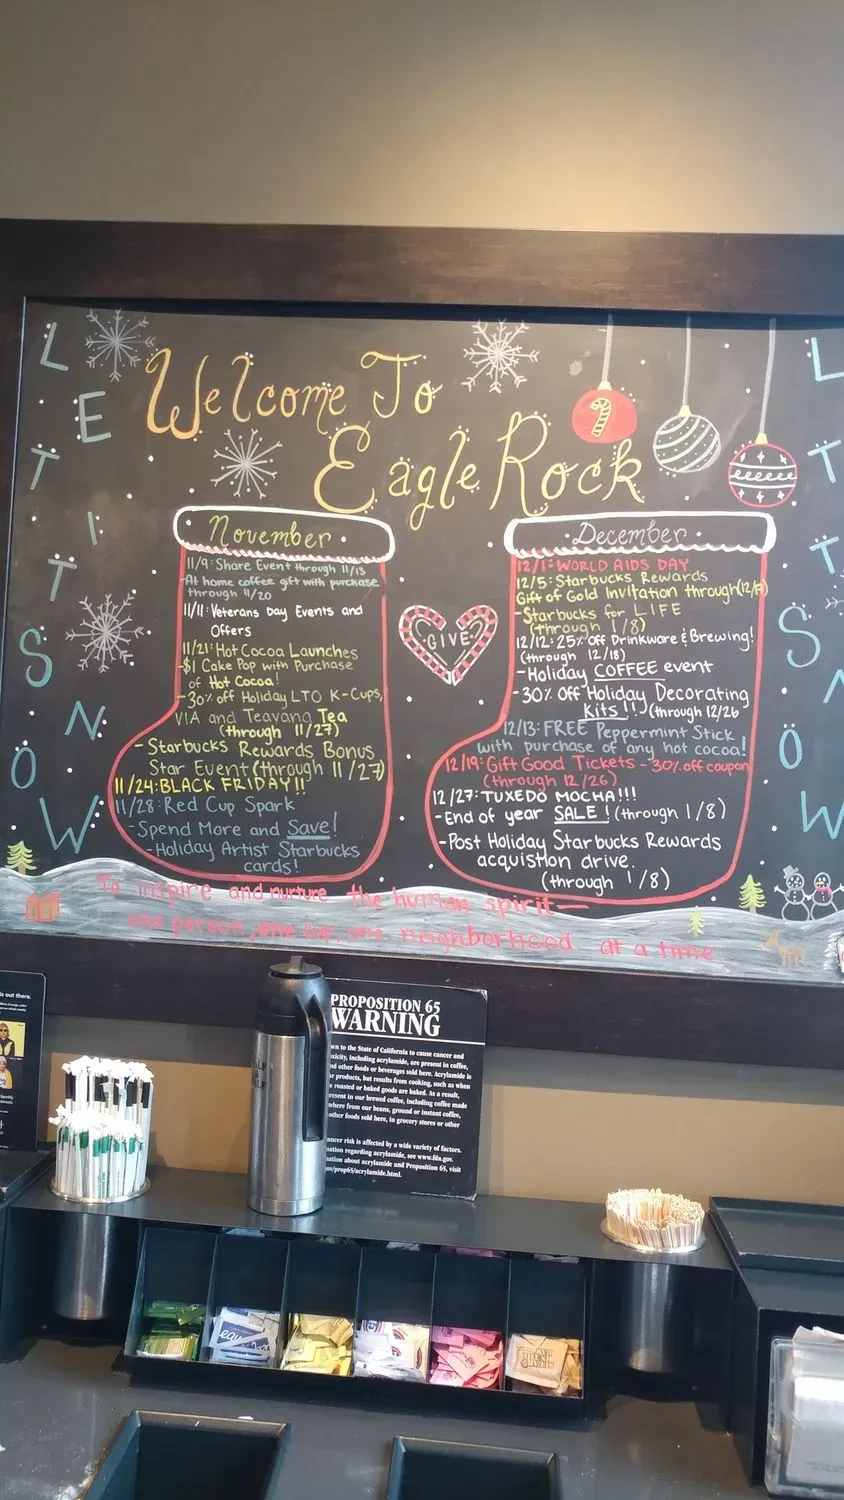 LET IT SNOW
Welcome To
Eagle Rock
November
11/9: Share Event through 11/13
-At home coffee gift with purchase
through 11/20
11/11: Veterans Day Events and
Offers
11/21: Hot Cocoa Launches
-$1 Cake Pop with Purchase
of Hot Cocoa!
-30% off Holiday LTO K-Cups,
VIA and Teavana Tea
(through 11/27)
-Starbucks Rewards Bonus
Star Event (through 11/27)
11/24: BLACK FRIDAY!!
11/28: Red Cup Spark
-Spend More and Save!
-Holiday Artist Starbucks
cards!
GIVE
December
12/1: WORLD AIDS DAY
12/5: Starbucks Rewards
Gift of Gold Invitation through(12/17)
-Starbucks for LIFE
(through 1/8)
12/12: 25% Off Drinkware & Brewing!
(through 12/18)
-Holiday COFFEE event
-30% Off Holiday Decorating
Kits!! (through 12/26
12/13: FREE Peppermint Stick
with purchase of any hot cocoa!
12/19: Gift Good Tickets - 30% off coupon
(through 12/26)
12/27: TUXEDO MOCHA!!!
-End of year SALE! (through 1/8)
-Post Holiday Starbucks Rewards
acquistion drive.
(through 1/8)
To inspire and nurture the human spirit—
one person, one cup, one neighborhood at a time
PROPOSITION 65
WARNING
wn to the State of California to cause cancer and
xicity, including acrylamide, are present in coffee,
nd other foods or beverages sold here. Acrylamide is
r products, but results from cooking, such as when
e roasted or baked goods are baked. As a result,
resent in our brewed coffee, including coffee made
where from our beans, ground or instant coffee,
other foods sold here, in grocery stores or other
ancer risk is affected by a wide variety of factors.
mation regarding acrylamide, see www.fda.gov.
nation about acrylamide and Proposition 65, visit
gov/prop65/acrylamide.html.
s out there.
Spotify
equal